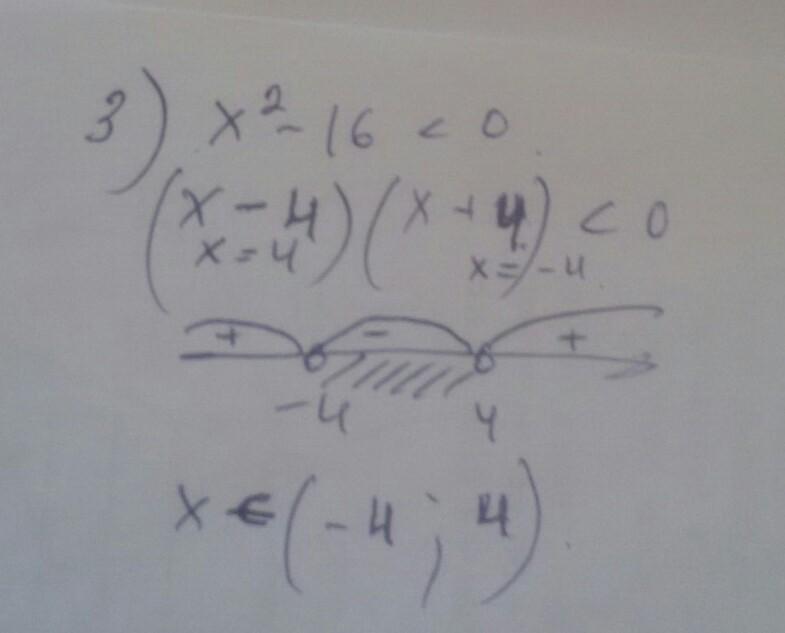 3) x² - 16 < 0
(x - 4)(x + 4) < 0
x = 4 x = -4
+ - +
-4 4
x ∈ (-4 ; 4).